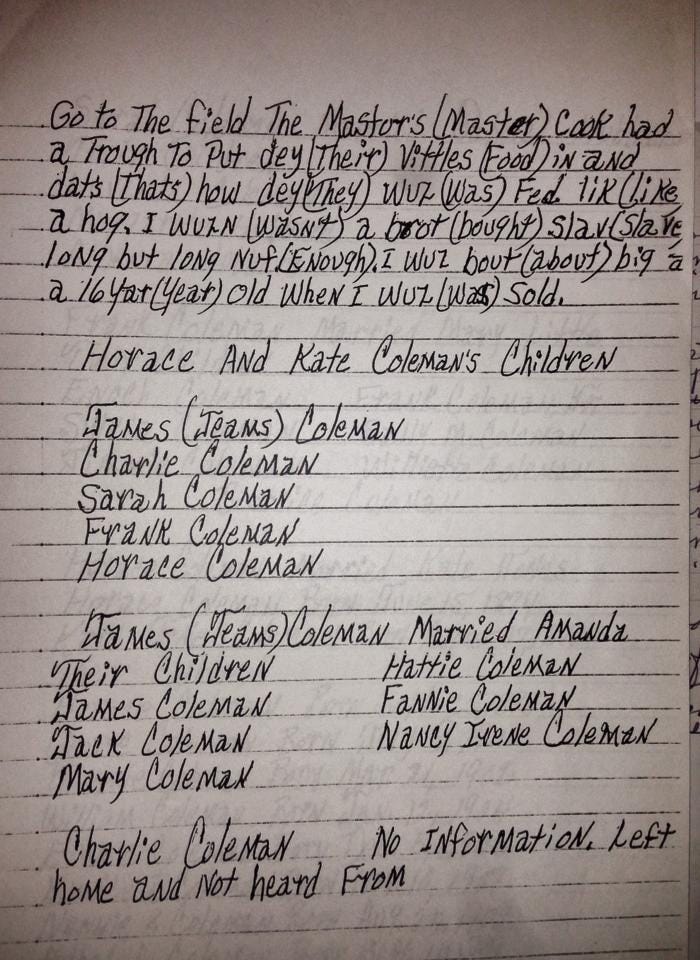 Go to The field The Mastor's (Master) Cook had
a Trough To Put dey (Their) Vittles (Food) in and
dats (Thats) how dey (They) wuz (was) Fed lik (like
a hog. I wuzn (wasnt) a brot (bought) slav (slave
long but long nuf (Enough). I wuz bout (about) big a
a 16 yar (year) old when I wuz (was) sold.
Horace And Kate Coleman's Children
James (Jeams) Coleman
Charlie Coleman
Sarah Coleman
Frank Coleman
Horace Coleman
James (Jeams) Coleman Married Amanda
Their Children Hattie Coleman
James Coleman Fannie Coleman
Jack Coleman Nancy Irene Coleman
Mary Coleman
Charlie Coleman No Information. Left
home and not heard From